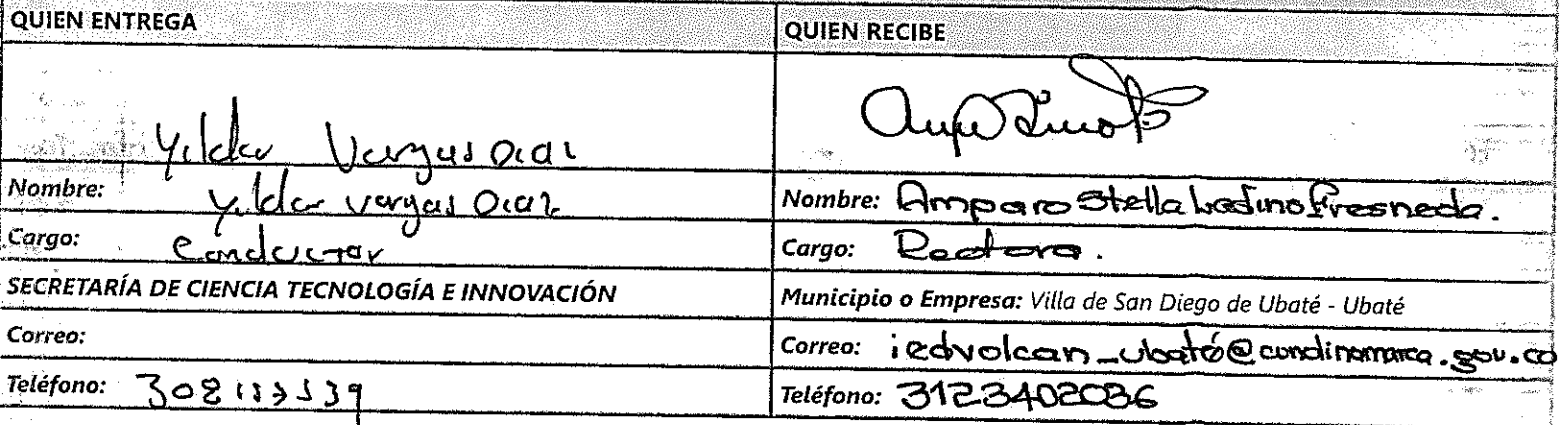 QUIEN ENTREGA
QUIEN RECIBE
Yilder Vargas Diaz
Nombre: Yilder Vargas Diaz
Nombre: Amparo Stella Ladino Fresneda.
Cargo: Conductor
Cargo: Rectora.
SECRETARÍA DE CIENCIA TECNOLOGÍA E INNOVACIÓN
Municipio o Empresa: Villa de San Diego de Ubaté - Ubaté
Correo:
Correo: iedvolcan_ubaté@cundinamarca.gov.co
Teléfono:
Teléfono: 3123402036